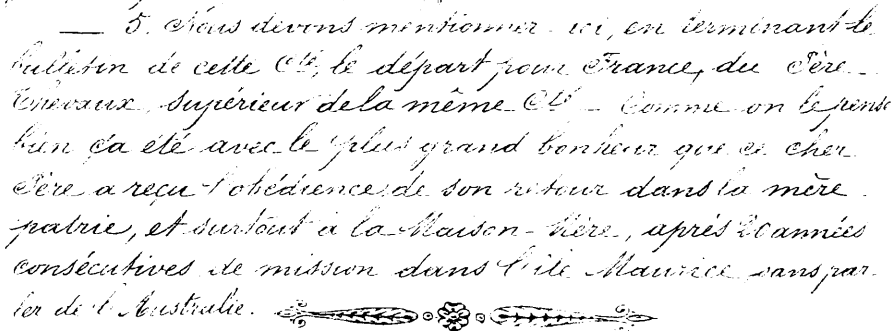 — 5. Nous devons mentionner ici, en terminant le
bulletin de cette Cté, le départ pour France, du Père
Chevaux, supérieur de la même Cté — Comme on le pense
bien ça été avec le plus grand bonheur que ce cher
Père a reçu l'obédience de son retour dans la mère
patrie, et surtout à la Maison-Mère, après 20 années
consécutives de mission dans l'île Maurice sans par-
ler de l'Australie.